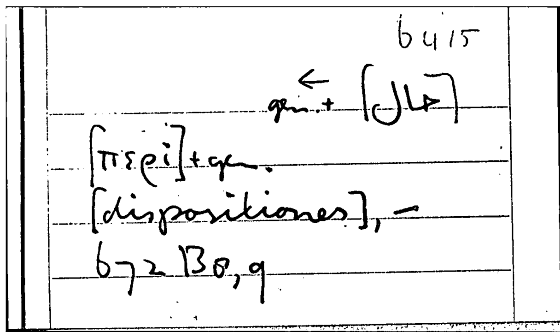 6415
gen. + [حال] ←
[περὶ] + gen.
[dispositiones], —
672 Bo, 9